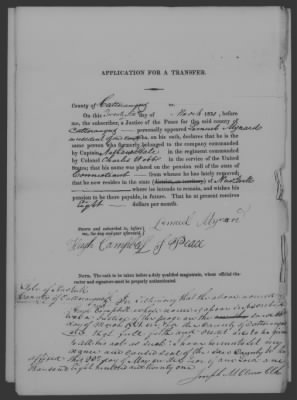 APPLICATION FOR A TRANSFER.
County of Cattaraugus ss.
On this day of March 1831, before
me, the subscriber, a Justice of the Peace for the said county of
Cattaraugus personally appeared Lemuel
who, on his oath, declares that he is the
same person who formerly belonged to the company commanded
by Captain Nathan Hale in the regiment commanded
by Colonel Charles Webb in the service of the United
States; that his name was placed on the pension roll of the state of
Connecticut from whence he has lately removed;
that he now resides in the state of New York
where he intends to remain, and wishes his
pension to be there payable, in future. That he at present receives
Eight dollars per month.
Lemuel
Sworn and subscribed to, before
me, the day and year aforesaid.
Hugh Campbell J Peace
NOTE. The oath to be taken before a duly qualified magistrate, whose official character
and signature must be properly authenticated.
State of New York
County of Cattaraugus ss. I certify that the above named
Hugh Campbell whose name is above subscribed
was a Justice of the peace on the
day of March 1831 in & for the County of Cattaraugus
and that full faith and credit are to be given
to all his acts as such. In
and seal of the said County
day of May in the year of our Lord one
thousand eight hundred and twenty one.
Joseph Clk